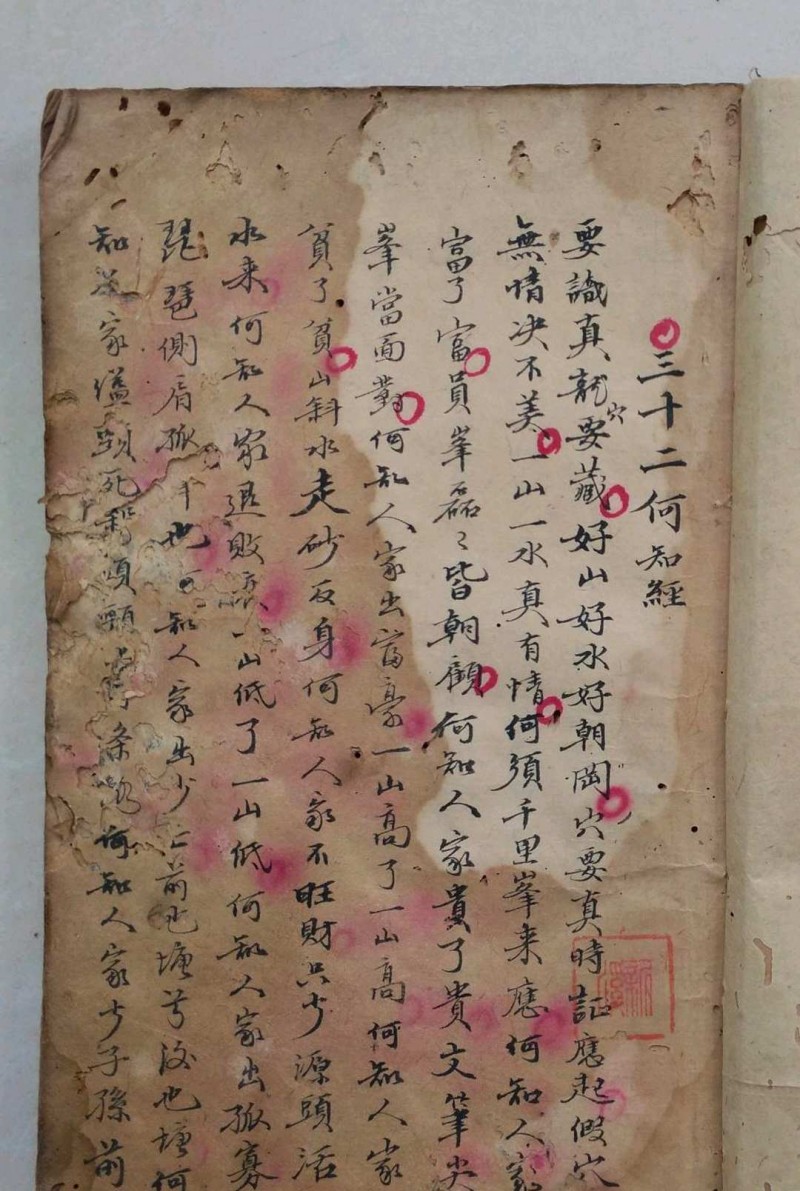 三十二何知經
要識真龍穴要藏好山好水好朝岡穴要真時証應起假穴
無情决不美一山一水真有情何須千里峯来應何知人家
富了富員峯磊〻皆朝顧何知人家貴了貴文筆尖
峯當面對何知人家出富豪一山高了一山高何知人家
貧了貧山斜水走砂反身何知人家不旺財只少源頭活
水来何知人家退敗一山低了一山低何知人家出孤寡
琵琶側肩孤也何知人家出少亡前也塘兮後也塘何
知人家縊頸死項何知人家少子孫前